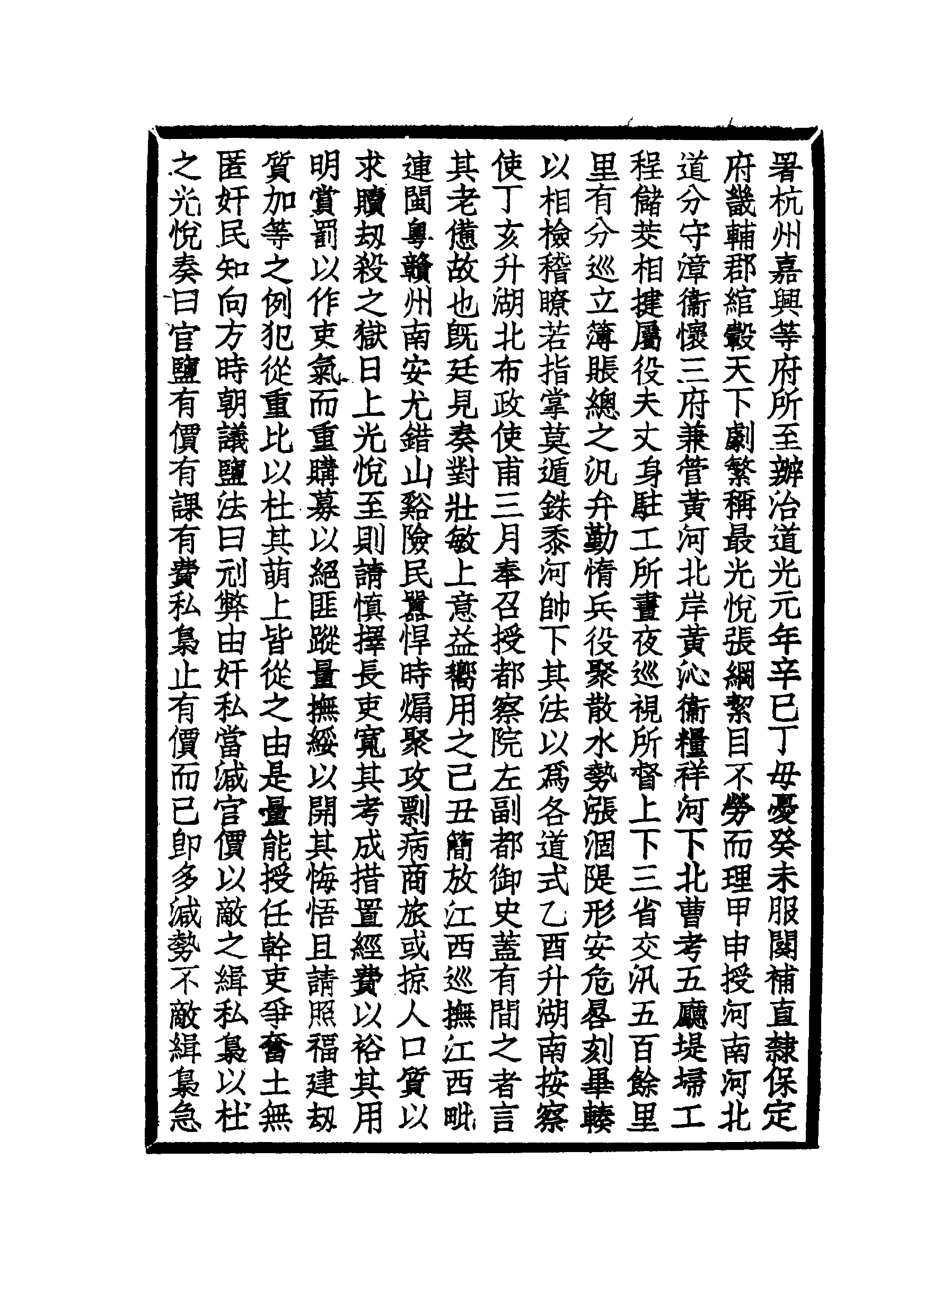 署杭州嘉興等府所至辦治道光元年辛巳丁毋憂癸未服闋補直隸保定
府畿輔郡綰轂天下劇繁稱最光悅張綱絜目不勞而理甲申授河南河北
道分守漳衞懷三府兼管黃河北岸黃沁衞糧祥河下北曹考五廳堤埽工
程儲茭相揵屬役夫丈身駐工所晝夜巡視所督上下三省交汛五百餘里
里有分巡立簿賬總之汛弁勤惰兵役聚散水勢漲涸隄形安危晷刻畢輳
以相檢稽瞭若指掌莫遁銖黍河帥下其法以爲各道式乙酉升湖南按察
使丁亥升湖北布政使甫三月奉召授都察院左副都御史蓋有間之者言
其老憊故也旣廷見奏對壯敏上意益嚮用之己丑簡放江西巡撫江西毗
連閩粵贛州南安尤錯山谿險民嚚悍時煽聚攻剽病商旅或掠人口質以
求贖刧殺之獄日上光悅至則請慎擇長吏寬其考成措置經費以裕其用
明賞罰以作吏氣而重購募以絕匪蹤量撫綏以開其悔悟且請照福建刧
質加等之例犯從重比以杜其萌上皆從之由是量能授任幹吏爭奮土無
匿奸民知向方時朝議鹽法曰刓弊由奸私當減官價以敵之緝私梟以杜
之光悅奏曰官鹽有價有課有費私梟止有價而已卽多減勢不敵緝梟急